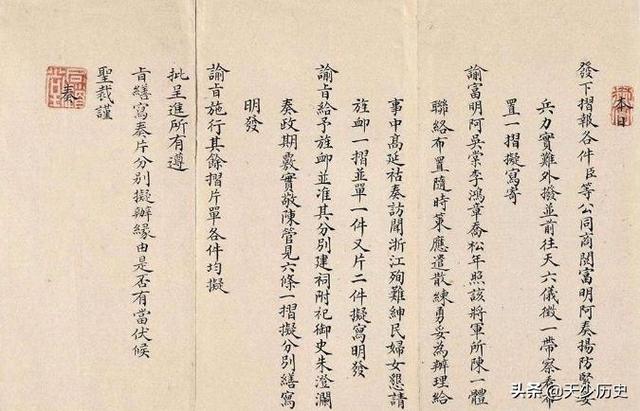 本日
發下摺報各件臣等公同商閱富明阿奏揚防緊要
兵力實難外撥並前往天六儀徵一帶察看布
置一摺擬寫寄
諭富明阿吳棠李鴻章喬松年照該將軍所陳一體
聯絡布置隨時策應遣散練勇妥為辦理給
事中高延祜奏訪聞浙江殉難紳民婦女懇請
旌卹一摺並單一件又片二件擬寫明發
諭旨給予旌卹並准其分別建祠附祀御史朱澄瀾
奏政期覈實敬陳管見六條一摺擬分別繕寫
明發
諭旨施行其餘摺片單各件均擬
批呈進所有遵
旨繕寫奏片分別擬辦緣由是否有當伏候
聖裁謹
奏
头条 @天少历史